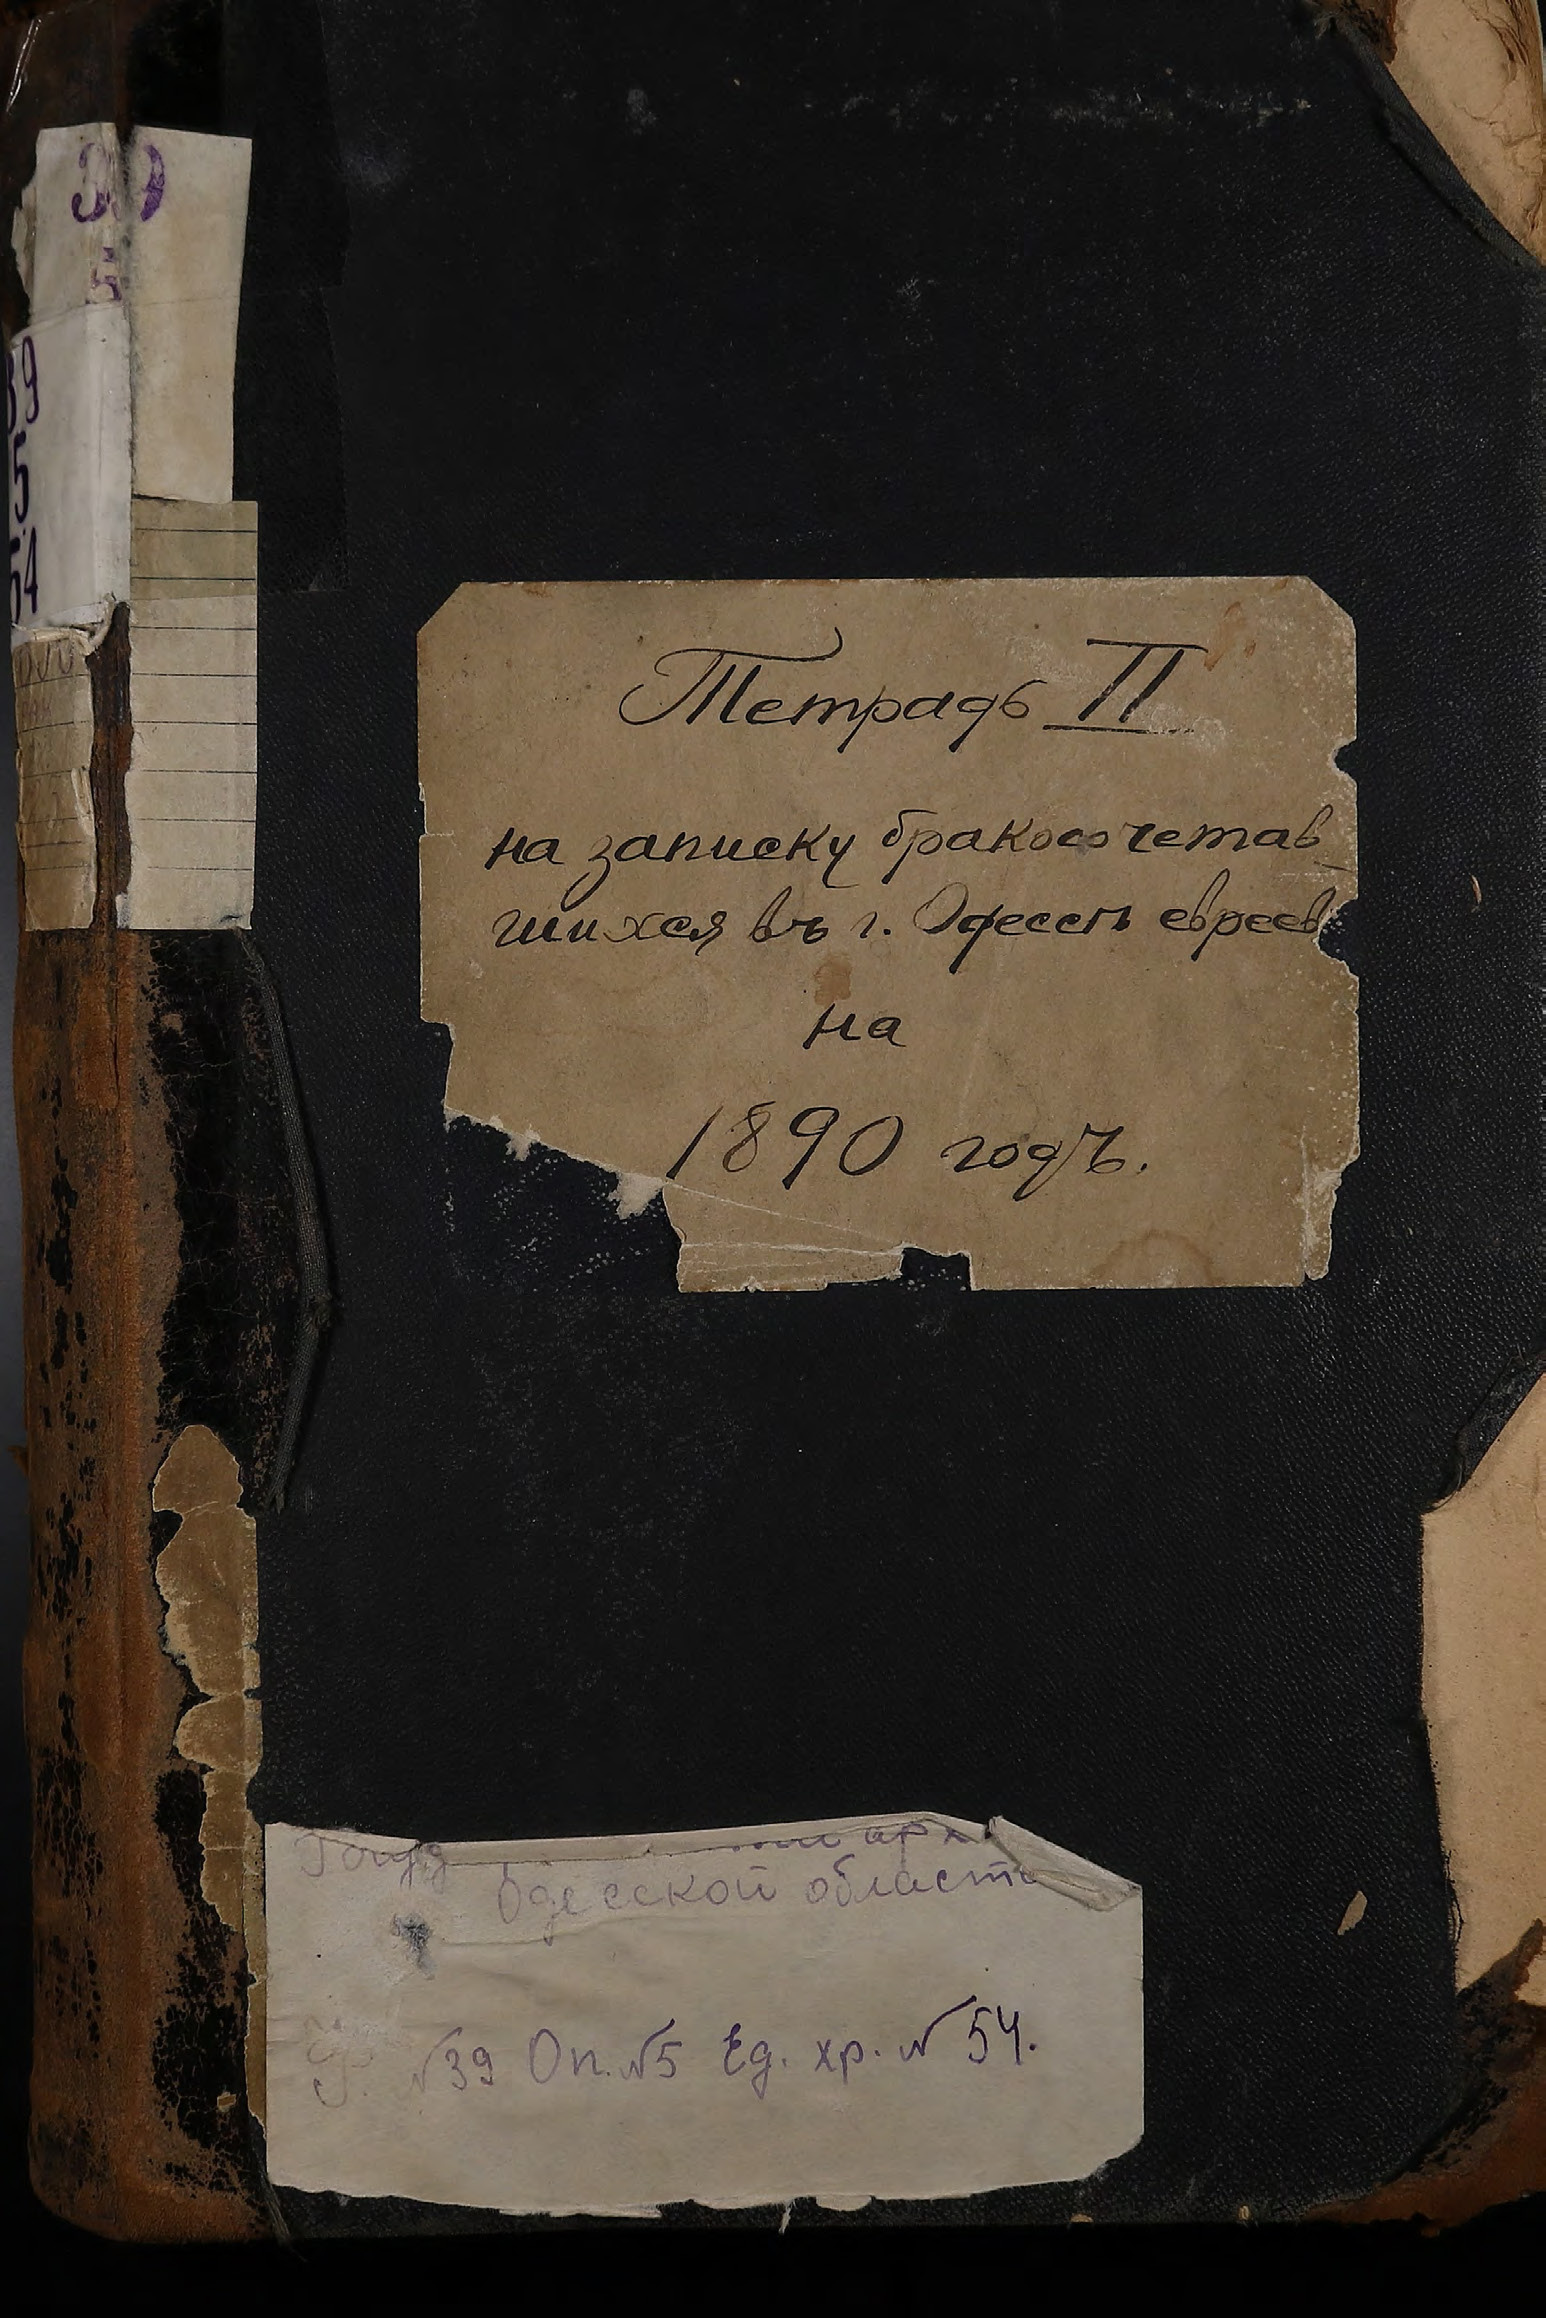 39
5
39
5
54
Тетрадь II
на записку бракосочетав-
шихся въ г. Одессѣ евреев
на
1890 годъ.
арх
Одесской области
Ф. №39 Оп. №5 Ед. хр. № 54.